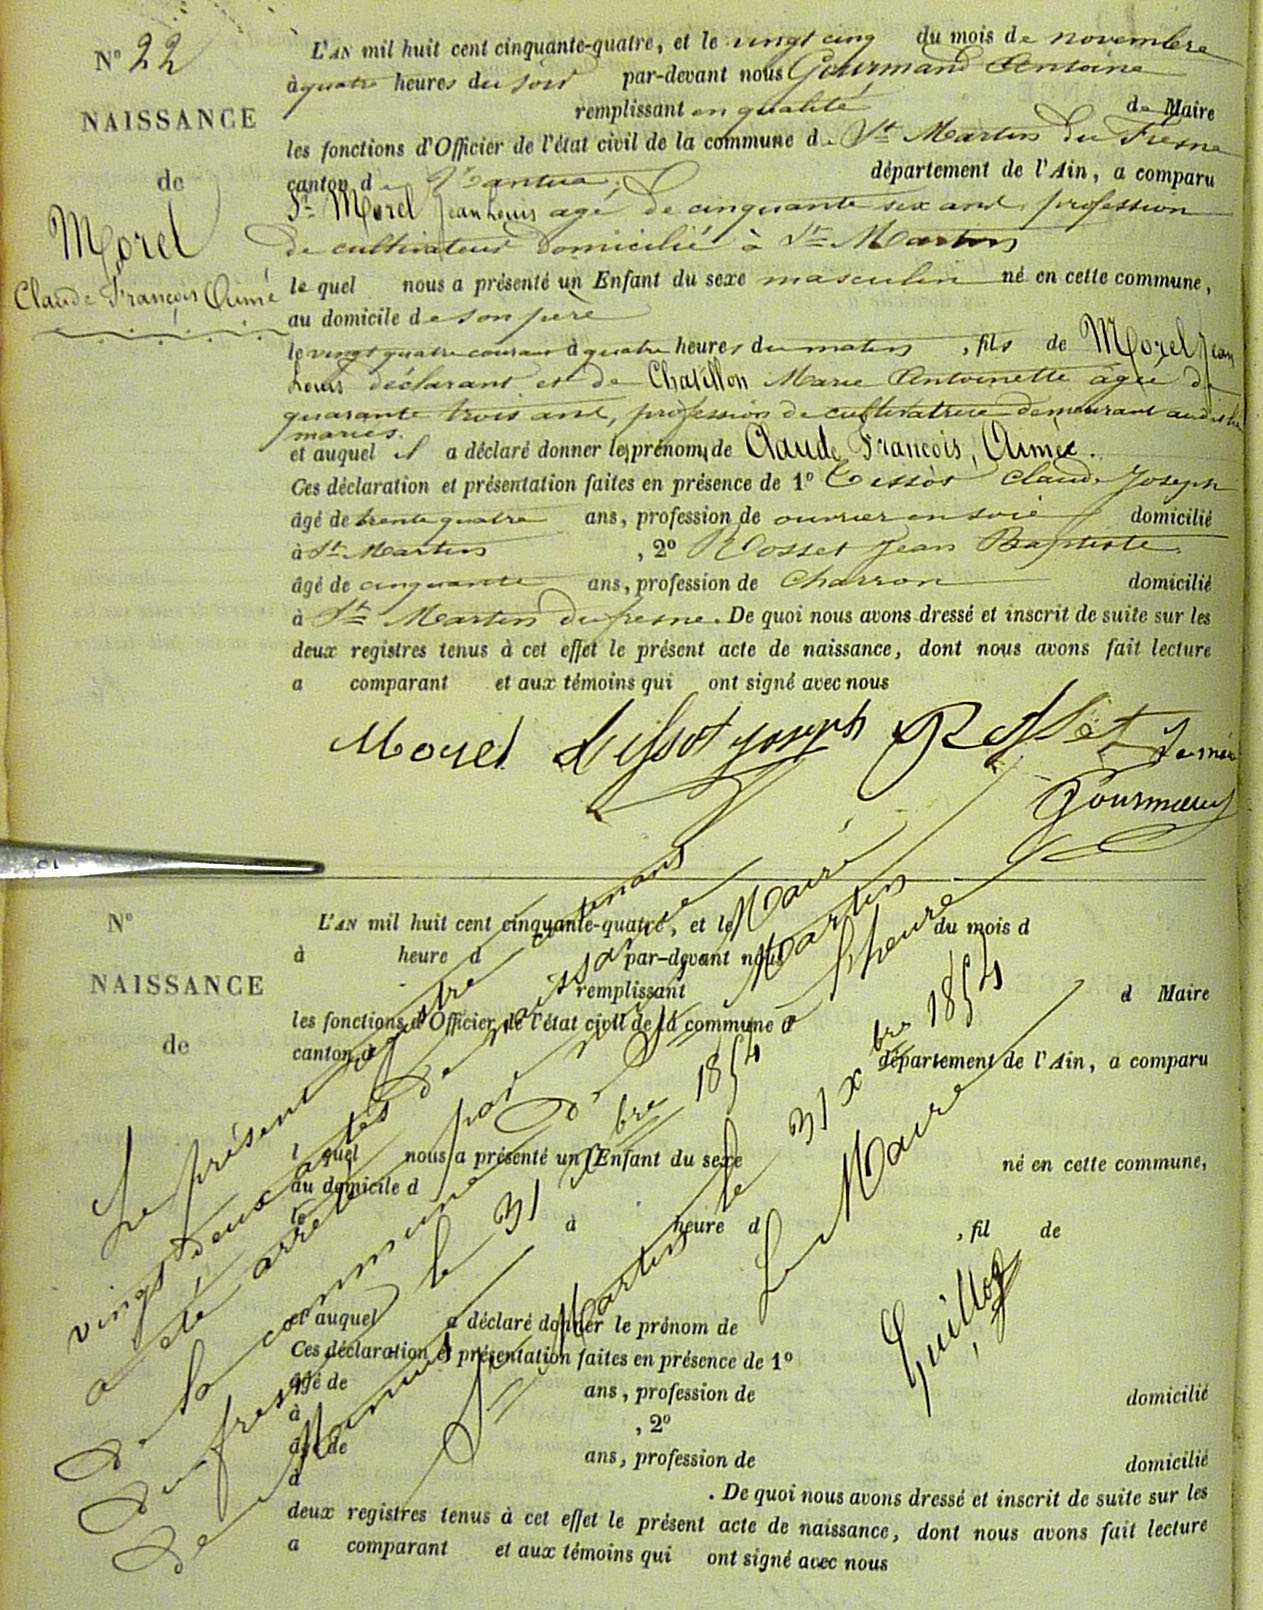 N° 22
NAISSANCE
de
Morel
Claude François Aimé
L'AN mil huit cent cinquante-quatre, et le vingt cinq du mois de novembre
à quatre heures du soir par-devant nous Gourmand Antoine
remplissant en qualité de Maire
les fonctions d'Officier de l'état civil de la commune de St Martin du Fresne
canton de Nantua département de l'Ain, a comparu
Sr Morel Jean Louis agé de cinquante six ans, profession
de cultivateur domicilié à St Martin
le quel nous a présenté un Enfant du sexe masculin né en cette commune,
au domicile de son père
le vingt quatre courant à quatre heures du matin, fils de Morel Jean
Louis déclarant et de Chatillon Marie Antoinette agée de
quarante trois ans, profession de cultivatrice demeurant audit lieu
mariés.
et auquel il a déclaré donner les prénoms de Claude, François, Aimé.
Ces déclaration et présentation faites en présence de 1° Tissot Claude Joseph
âgé de trente quatre ans, profession de ouvrier en soie domicilié
à St Martin, 2° Rosset Jean Baptiste
âgé de cinquante ans, profession de charron domicilié
à St Martin du fresne. De quoi nous avons dressé et inscrit de suite sur les
deux registres tenus à cet effet le présent acte de naissance, dont nous avons fait lecture
a comparant et aux témoins qui ont signé avec nous
Morel Tissot joseph Rosset Le maire
Gourmand
N°
NAISSANCE
de
L'AN mil huit cent cinquante-quatre, et le du mois d
à heure d par-devant nous
remplissant d Maire
les fonctions d'Officier de l'état civil de la commune d
canton d département de l'Ain, a comparu
l quel nous a présenté un Enfant du sexe né en cette commune,
au domicile d
le à heure d , fil de
et auquel a déclaré donner le prénom de
Ces déclaration et présentation faites en présence de 1°
âgé de ans, profession de domicilié
à , 2°
âgé de ans, profession de domicilié
à . De quoi nous avons dressé et inscrit de suite sur les
deux registres tenus à cet effet le présent acte de naissance, dont nous avons fait lecture
a comparant et aux témoins qui ont signé avec nous
Le présent registre contenant
vingt deux actes de naissance
a été arrêté par nous Maire
de la commune de St Martin
du fresne le 31 Xbre 1854 à heure
de minuit
St Martin le 31 Xbre 1854
Le Maire
Guilloz